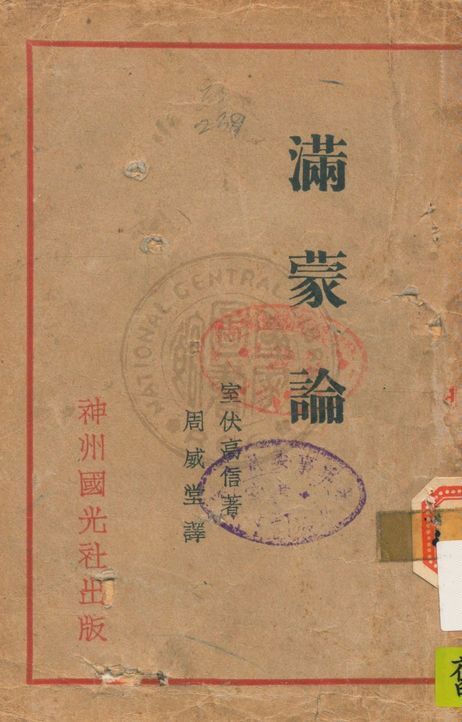 滿蒙論
室伏高信著
周威堂譯
神州國光社出版
NATIONAL CENTRAL